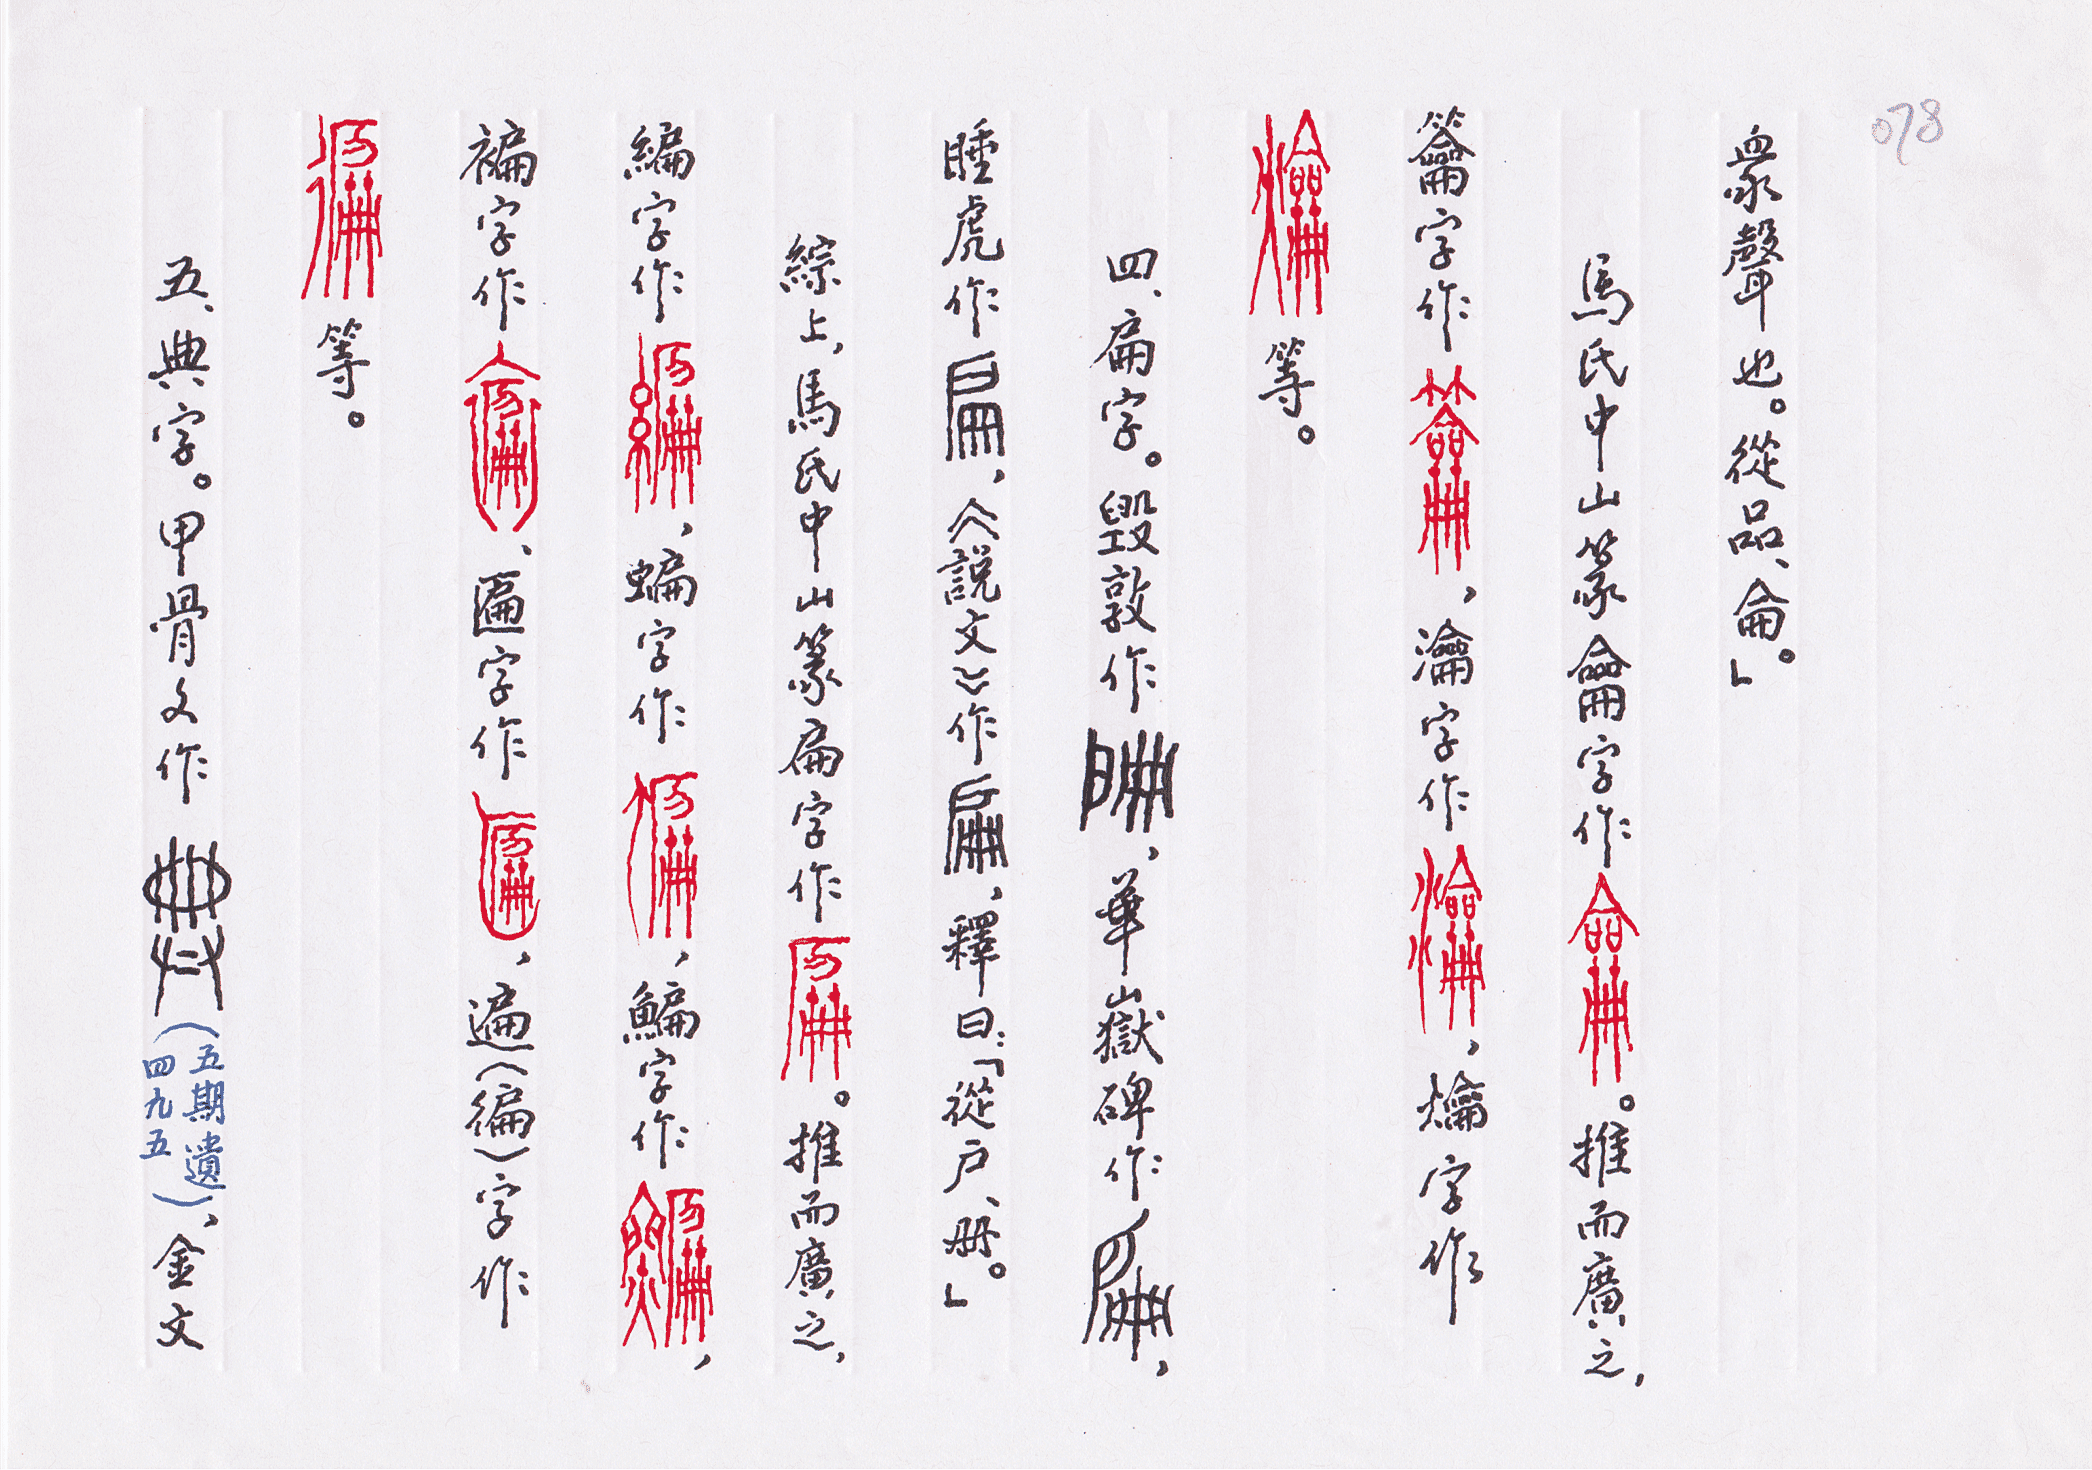 078
衆聲也。從品、侖。」
馬氏中山篆龠字作。推而廣之，
籥字作，瀹字作，爚字作
等。
四、扁字。毀敦作，華山嶽碑作，
睡虎作，《説文》作，釋曰：「從户、册。」
綜上，馬氏中山篆扁字作。推而廣之，
編字作，蝙字作，鯿字作，
褊字作、匾字作，遍（徧）字作
等。
五、典字。甲骨文作（五期遺四九五），金文